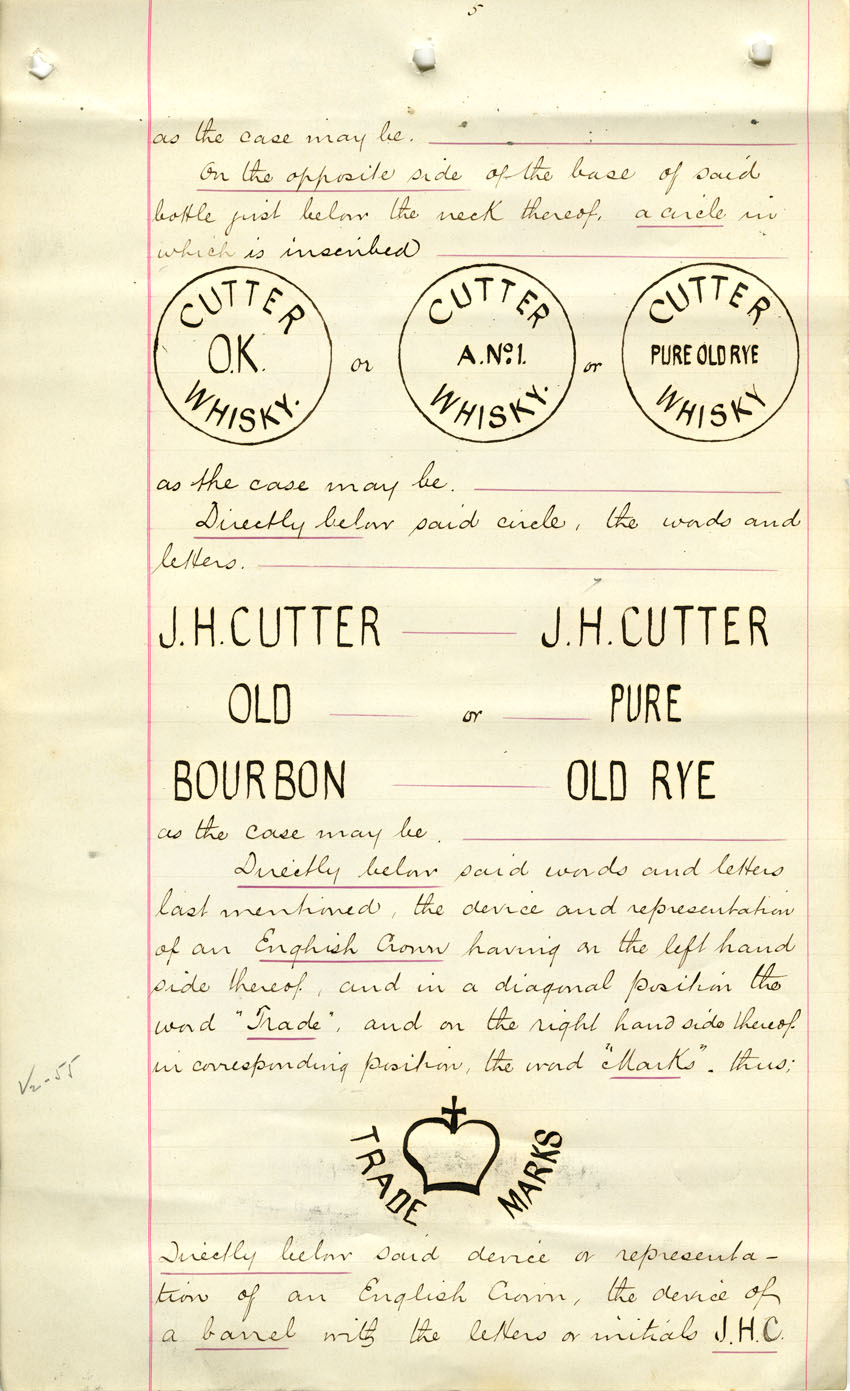 5
as the case may be.
On the opposite side of the base of said
bottle just below the neck thereof, a circle in
which is inscribed
CUTTER O.K. WHISKY. or CUTTER A.No.1. WHISKY. or CUTTER PURE OLD RYE WHISKY
as the case may be.
Directly below said circle, the words and
letters.
J.H.CUTTER J.H.CUTTER
OLD or PURE
BOURBON OLD RYE
as the case may be.
Directly below said words and letters
last mentioned, the device and representation
of an Enghish Crown having on the left hand
side thereof, and in a diagonal position the
word "Trade", and on the right hand side thereof
in corresponding position, the word "Marks". thus;
TRADE MARKS
Directly below said device or representa-
tion of an English Crown, the device of
a barrel with the letters or initials J.H.C.